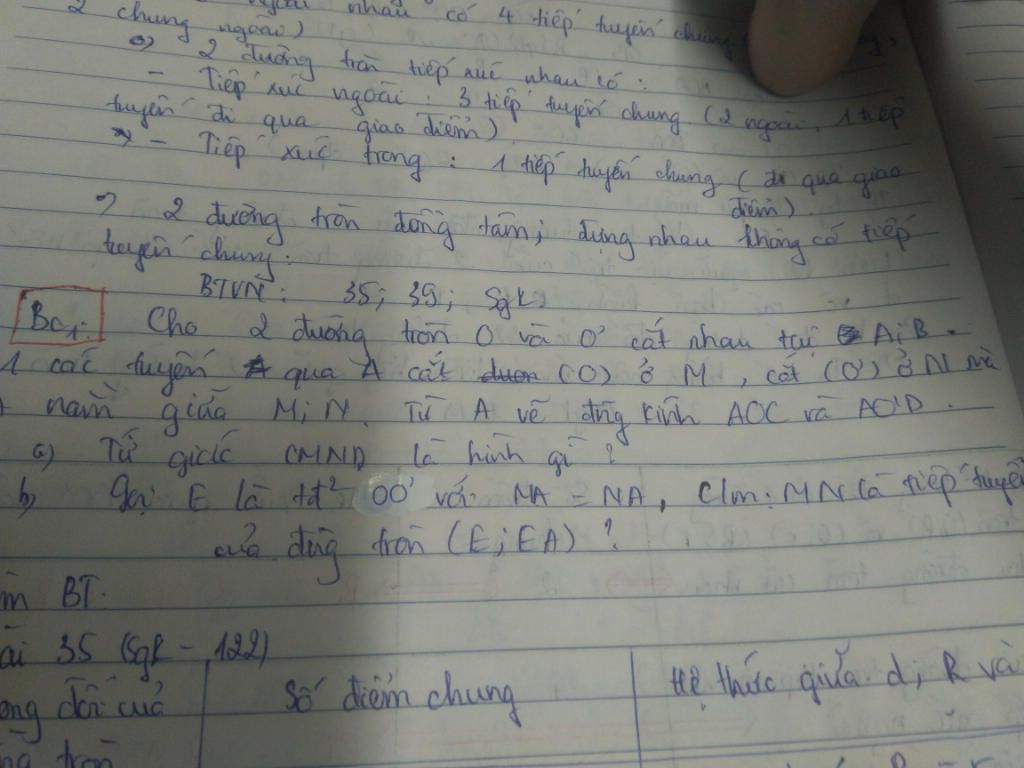 2 chung ngoài) nhau có 4 tiếp tuyến chung
o) 2 đường tròn tiếp xúc nhau có:
- Tiếp xúc ngoài: 3 tiếp tuyến chung (2 ngoài, 1 tiếp
tuyến đi qua giao điểm)
- Tiếp xúc trong: 1 tiếp tuyến chung (đi qua giao
điểm)
2 đường tròn đồng tâm; đựng nhau không có tiếp
tuyến chung.
BTVN: 35; 39; Sgk.
Bc1: Cho 2 đường tròn O và O' cắt nhau tại A; B.
1 các tuyến qua A cắt (O) ở M, cắt (O') ở N và
A nằm giữa M; N. Từ A vẽ đng kính AOC và AO'D.
a) Tứ giác CMND là hình gì?
b) Gọi E là tđ² OO' với NA = NA, C/m: MN là tiếp tuyến
của đng tròn (E; EA)?
BT.
35 (Sgk - 122)
Số điểm chung
Hệ thức giữa d; R và
tròn